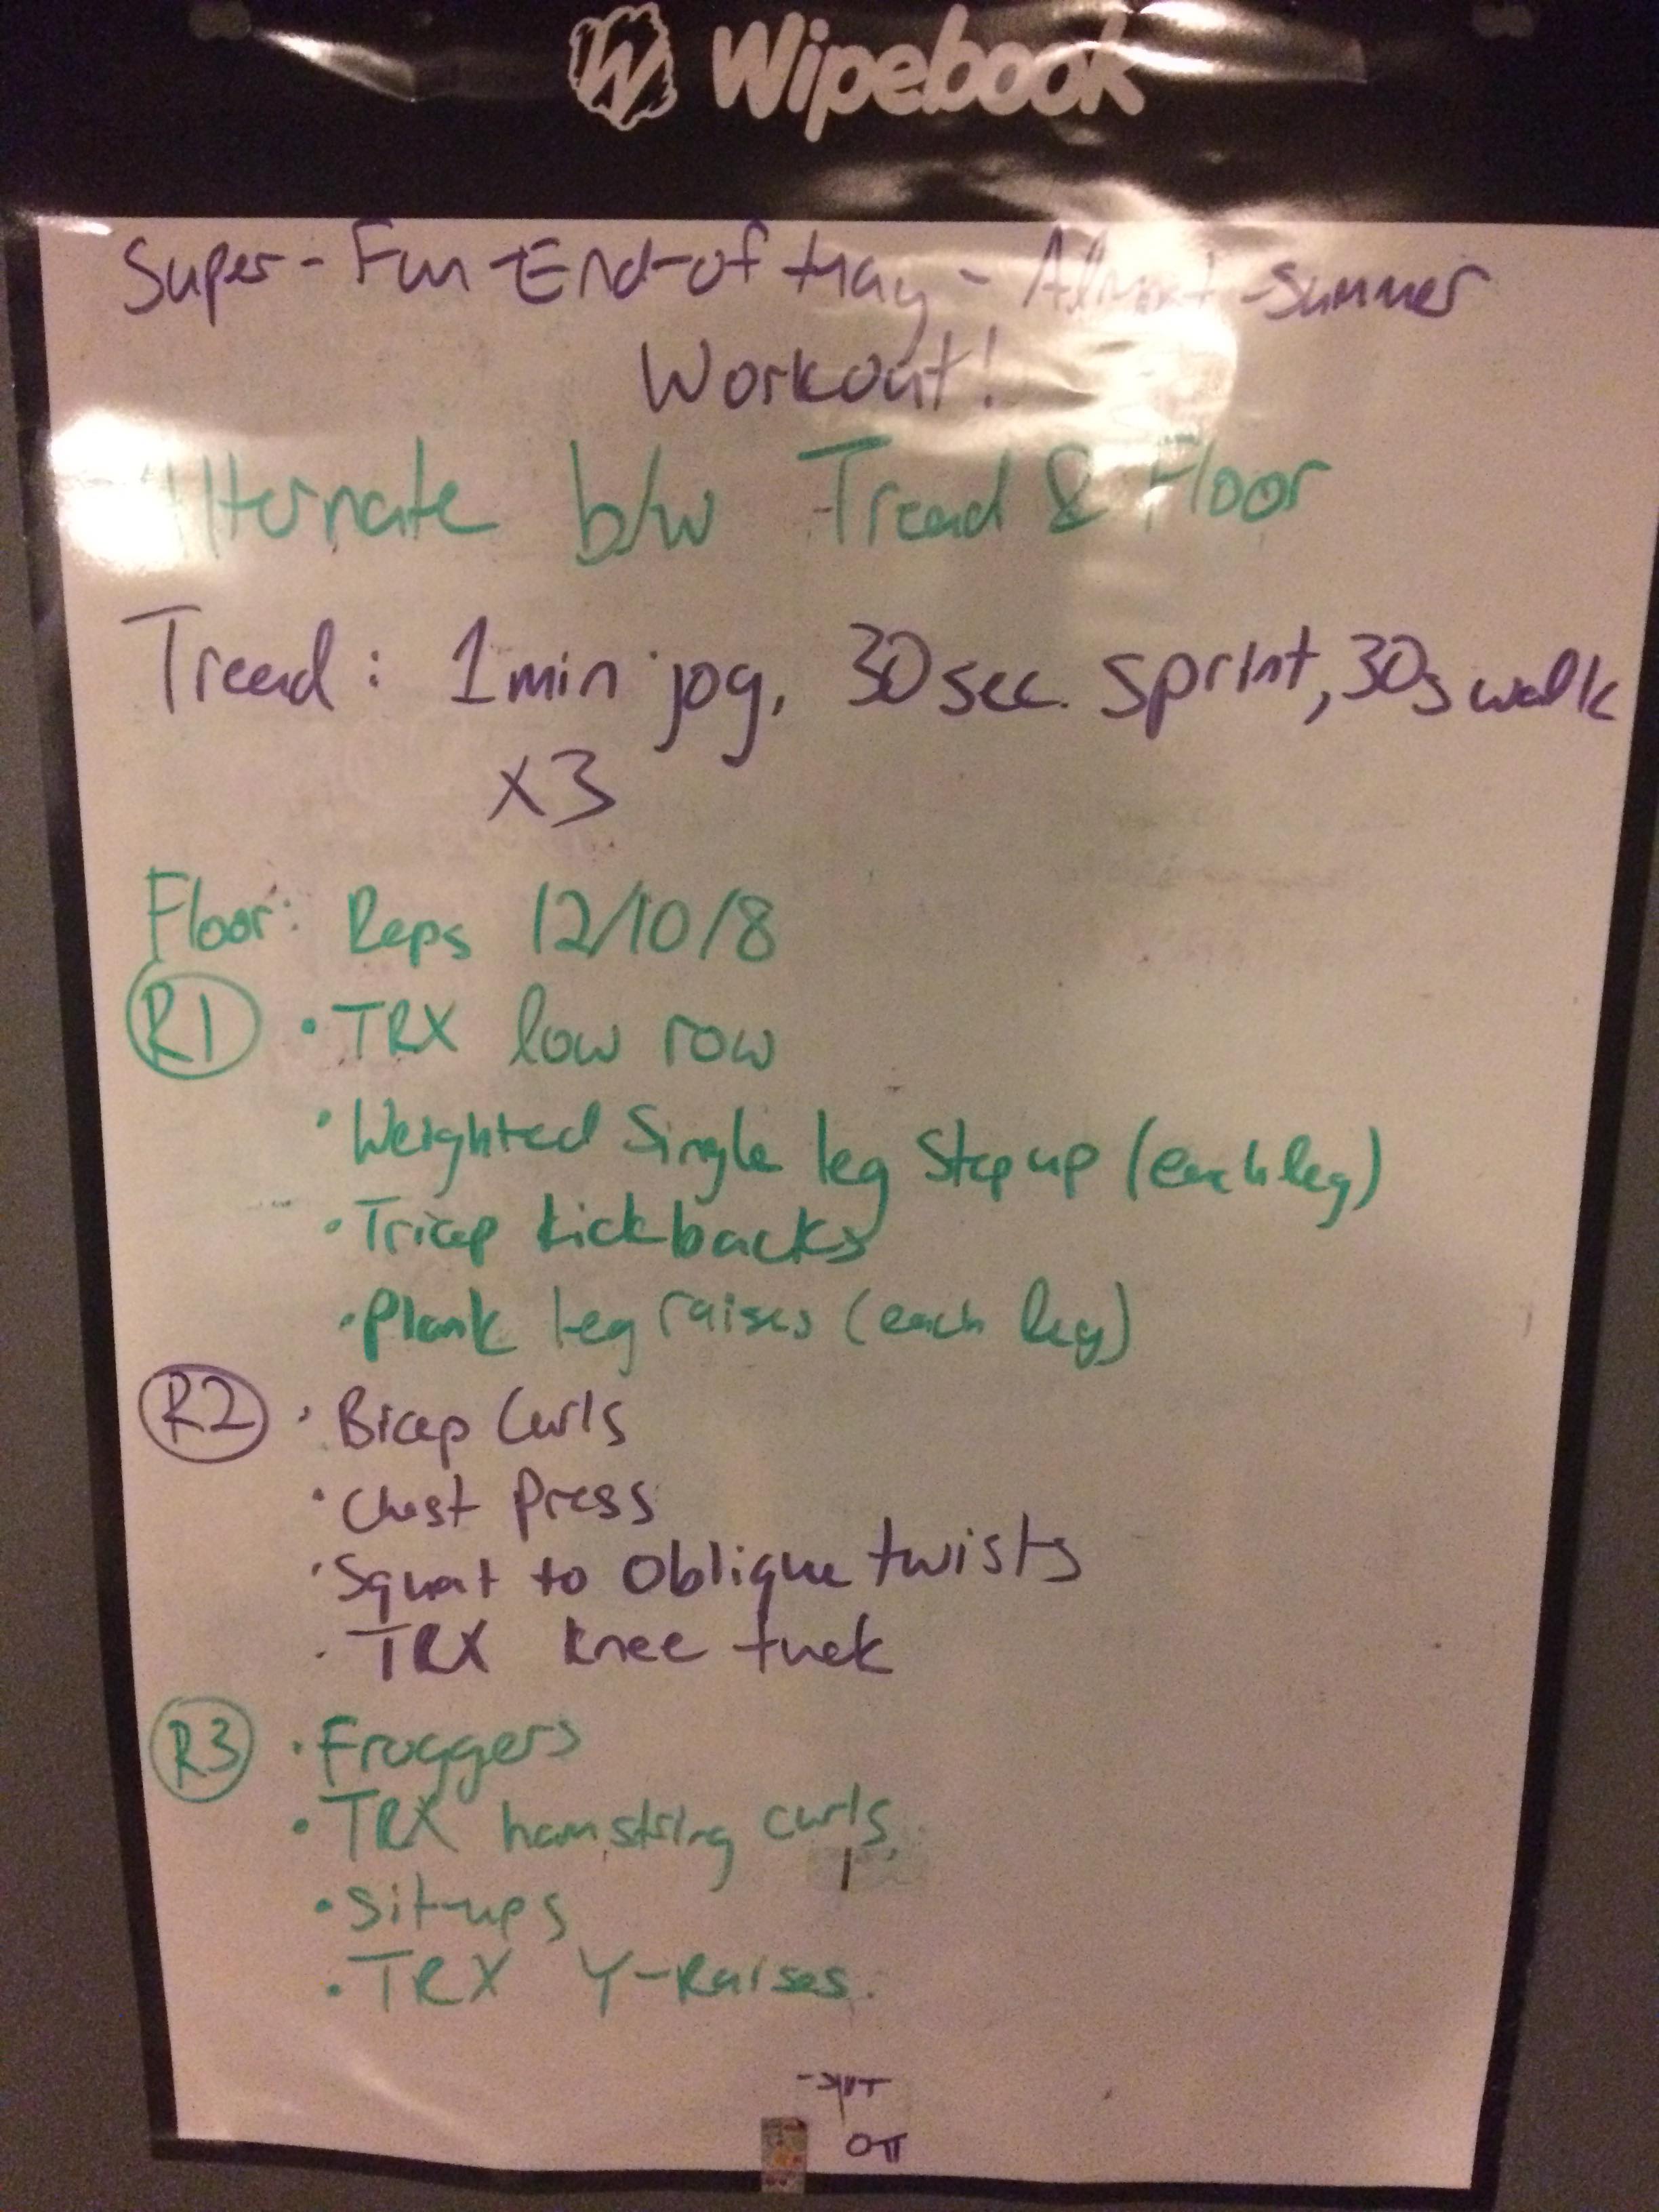 Wipebook
Super-Fun-End-of May - Almost-Summer
Workout!
Alternate b/w Tread & Floor
Tread: 1 min jog, 30 sec. sprint, 30s walk
x3
Floor: Reps 12/10/8
R1 • TRX low row
• Weighted Single leg Step up (each leg)
• Tricep kickbacks
• Plank leg raises (each leg)
R2 • Bicep Curls
• Chest Press
• Squat to Oblique twists
• TRX knee tuck
R3 • Froggers
• TRX hamstring curls
• Sit-ups
• TRX Y-Raises.